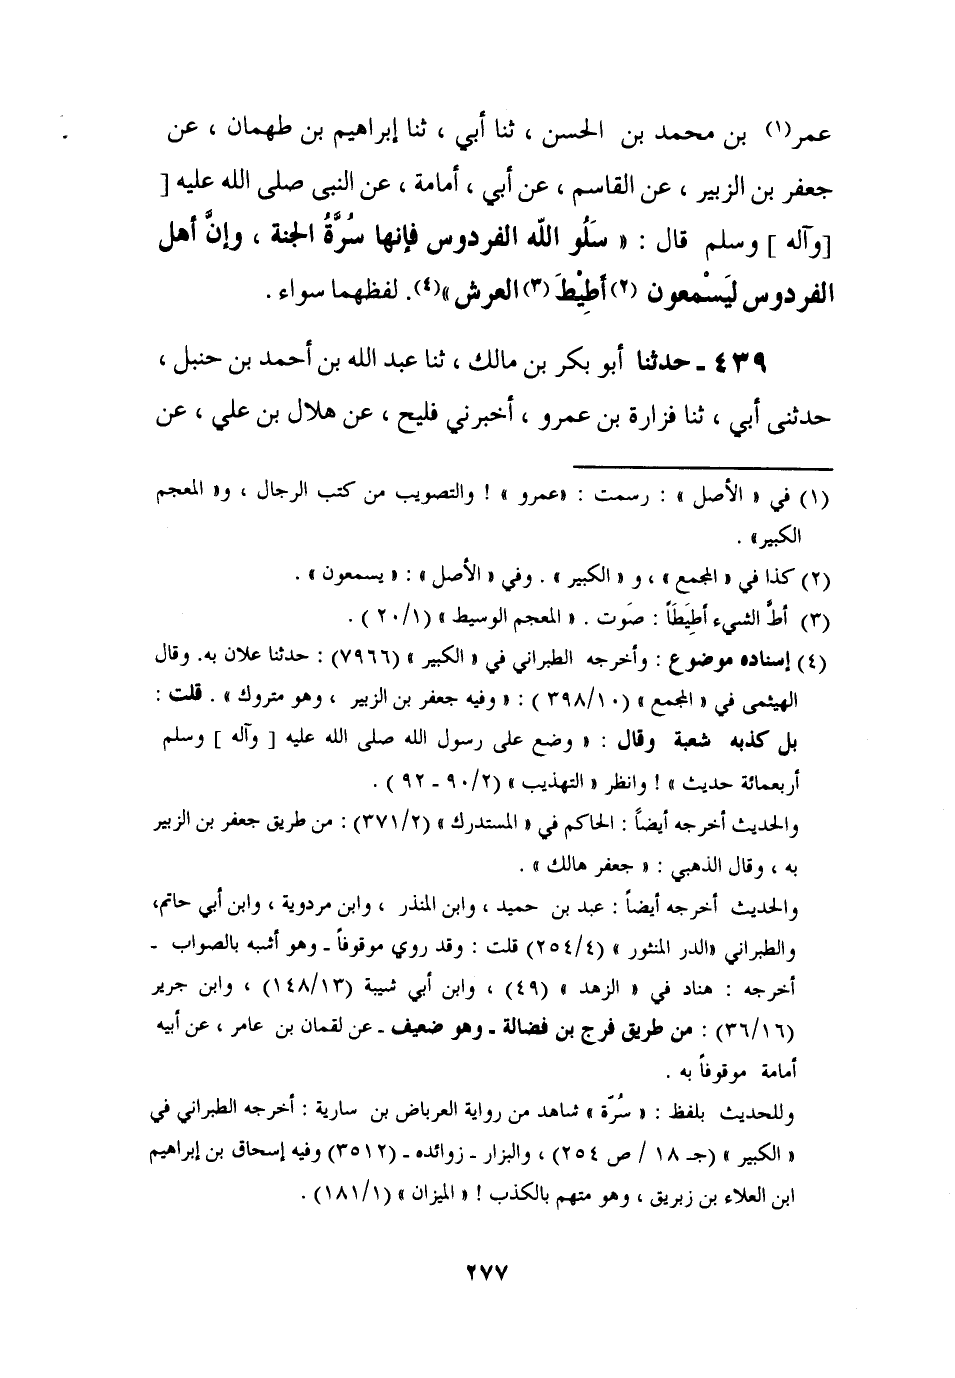 عمر(١) بن محمد بن الحسن ، ثنا أبي ، ثنا إبراهيم بن طهمان ، عن
جعفر بن الزبير ، عن القاسم ، عن أبي ، أمامة ، عن النبى صلى الله عليه [
[وآله ] وسلم قال : « سَلُو اللّه الفردوس فإنها سُرَّةُ الجنة ، وإنَّ أهل
الفردوس ليَسْمعون (٢) أَطِيْطَ (٣) العرش »(٤). لفظهما سواء .
٤٣٩ ـ حدثنا أبو بكر بن مالك ، ثنا عبد الله بن أحمد بن حنبل ،
حدثنى أبي ، ثنا فزارة بن عمرو ، أخبرني فليح ، عن هلال بن علي ، عن
(١) في « الأصل » : رسمت : «عمرو » ! والتصويب من كتب الرجال ، و« المعجم
الكبير» .
(٢) كذا في « المجمع » ، و « الكبير » . وفي « الأصل » : « يسمعون » .
(٣) أطَّ الشيء أطِيَطَاً : صَوت . « المعجم الوسيط » (٢٠/١ ) .
(٤) إسناده موضوع : وأخرجه الطبراني في « الكبير » (٧٩٦٦) : حدثنا علان به. وقال
الهيثمى في « المجمع » (٣٩٨/١٠ ) : « وفيه جعفر بن الزبير ، وهو متروك » . قلت :
بل كذبه شعبة وقال : « وضع على رسول الله صلى الله عليه [ وآله ] وسلم
أربعمائة حديث » ! وانظر « التهذيب » (٩٠/٢ ـ ٩٢ ) .
والحديث أخرجه أيضاً : الحاكم في « المستدرك » (٣٧١/٢) : من طريق جعفر بن الزبير
به ، وقال الذهبي : « جعفر هالك » .
والحديث أخرجه أيضاً : عبد بن حميد ، وابن المنذر ، وابن مردوية ، وابن أبي حاتم،
والطبراني «الدر المنثور » (٢٥٤/٤) قلت : وقد روي موقوفاً ـ وهو أشبه بالصواب ـ
أخرجه : هناد في « الزهد » (٤٩) ، وابن أبي شيبة (١٤٨/١٣) ، وابن جرير
(٣٦/١٦) : من طريق فرج بن فضالة ـ وهو ضعيف ـ عن لقمان بن عامر ، عن أبيه
أمامة موقوفاً به .
وللحديث بلفظ : « سُرّة » شاهد من رواية العرباض بن سارية : أخرجه الطبراني في
« الكبير » (جـ ١٨ / ص ٢٥٤) ، والبزار ـ زوائده ـ (٣٥١٢) وفيه إسحاق بن إبراهيم
ابن العلاء بن زبريق ، وهو متهم بالكذب ! « الميزان » (١٨١/١) .
٢٧٧